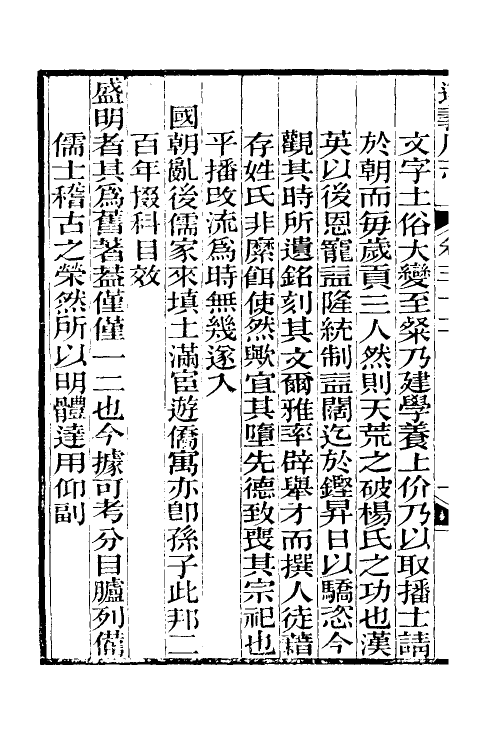 文字土俗大變至粲乃建學養上价乃以取播士請
於朝而每歲貢三人然則天荒之破楊氏之功也漢
英以後恩寵益隆統制益闊迄於鏗昇日以驕恣今
觀其時所遺銘刻其文爾雅率辟舉才而撰人徒藉
存姓氏非縻餌使然歟宜其墮先德致喪其宗祀也
平播改流爲時無幾遂入
國朝亂後儒家來填土滿宦遊僑寓亦卽孫子此邦二
百年掇科目效
盛明者其爲舊著葢僅僅一二也今據可考分目臚列僃
儒士稽古之榮然所以明體達用仰副